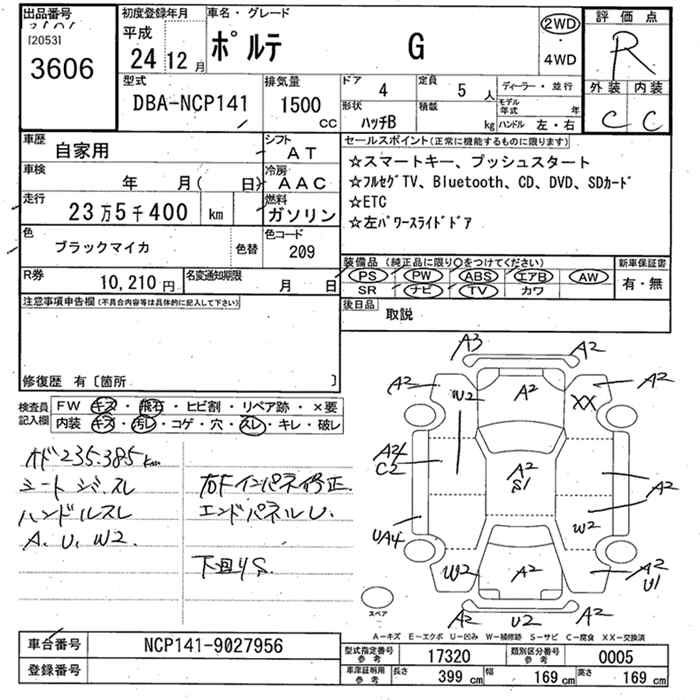 出品番号
[2053]
3606
初度登録年月
平成
24 12 月
車名・グレード
ポルテ G
2WD
・
4WD
評価点
R
外装 内装
C C
型式
DBA-NCP141
排気量
1500
CC
ドア
4
定員
5 人
形状
ハッチB
積載
kg
ディーラー・並行
モデル年式
年
ハンドル 左・右
車歴
自家用
シフト
AT
車検
年 月( 日)
冷房
AAC
走行
23万5千400 km
燃料
ガソリン
色
ブラックマイカ
色替
色コード
209
R券
10,210 円
名変通知期限
月 日
セールスポイント(正常に機能するものに限ります)
☆スマートキー、プッシュスタート
☆フルセグTV、Bluetooth、CD、DVD、SDカード
☆ETC
☆左パワースライドドア
装備品 (純正品に限り○をつけてください)
PS PW ABS エアB AW
SR ナビ TV カワ
新車保証書
有・無
後日品
取説
注意事項申告欄(不具合内容等は具体的に記入して下さい)
修復歴 有〔箇所 〕
検査員記入欄
FW キズ・飛石・ヒビ割・リペア跡・×要
内装 キズ・汚レ・コゲ・穴・スレ・キレ・破レ
235.385km
シート シミ.スレ
ハンドルスレ
A、U、W2
右Fインパネ修正
エンドパネルU.
下回りS
A3
A2
A2
W2
A2
XX
A2
A24
C2
A2
S1
A2
UA4
W2
W2
A2
A2
U1
A2
U2
A2
スペア
A-キズ E-エクボ U-凹み W-補修跡 S-サビ C-腐食 XX-交換済
車台番号
NCP141-9027956
登録番号
型式指定番号
参考
17320
類別区分番号
参考
0005
車庫証明用
参考
長さ
399 cm
幅
169 cm
高さ
169 cm